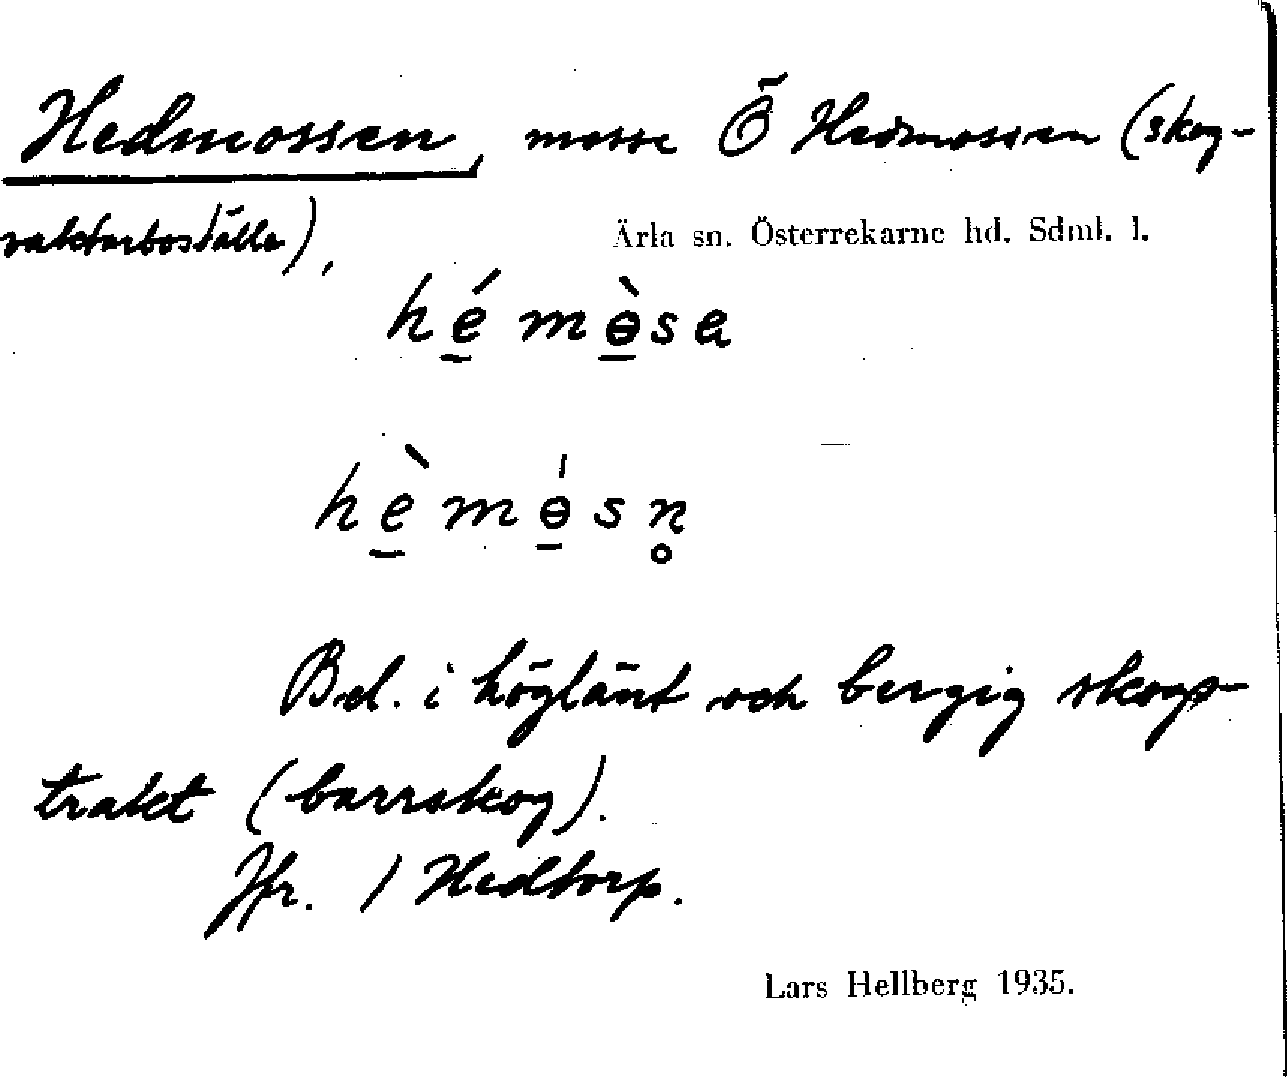 Hedmossen, mosse Ö Hedmossen (skog-
vaktarboställe),
Ärla sn. Österrekarne hd. Sdml. l.
hé̱mɵ̱̀sa
hè̱mɵ̱́sn̥
Bel. i höglänt och bergig skogs-
trakt (barrskog).
Jfr. / Hedtorp.
Lars Hellberg 1935.